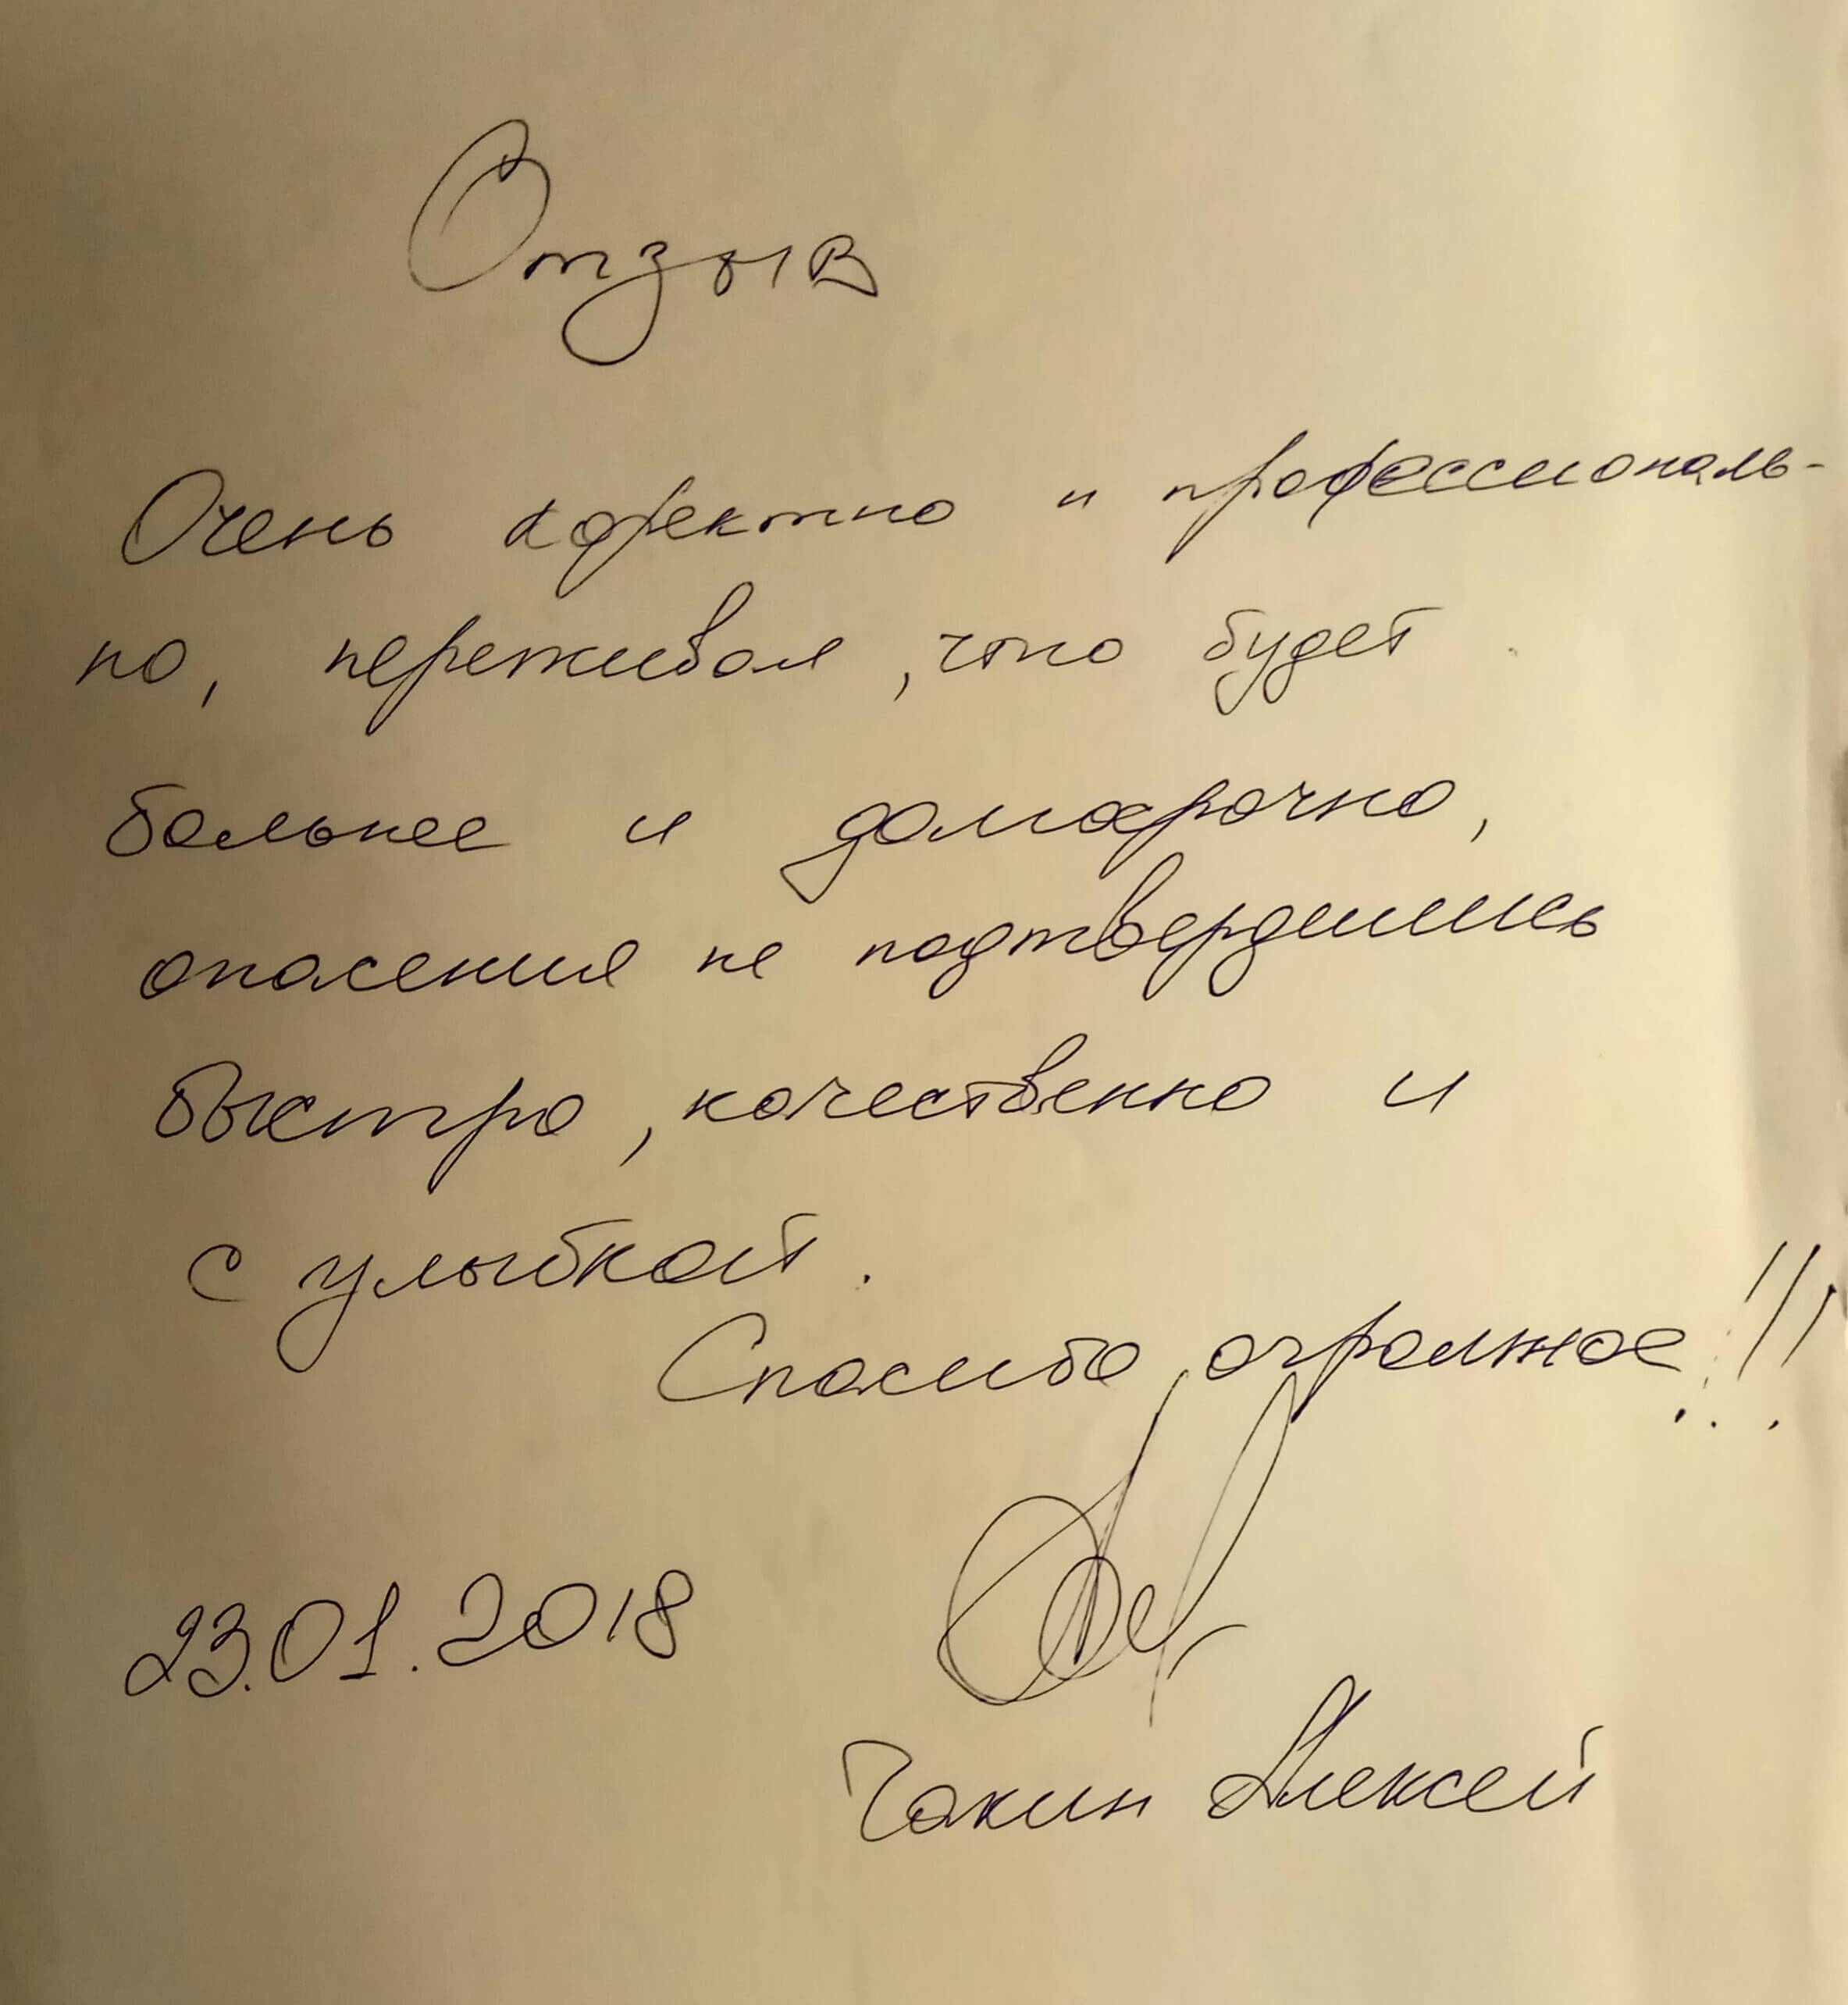 Отзыв
Очень корректно и профессиональ-
но, переживал, что будет
больнее и
опасения не подтвердились
быстро, качественно и
с улыбкой.
Спасибо огромное!!!
23.01.2018
Чакин Алексей